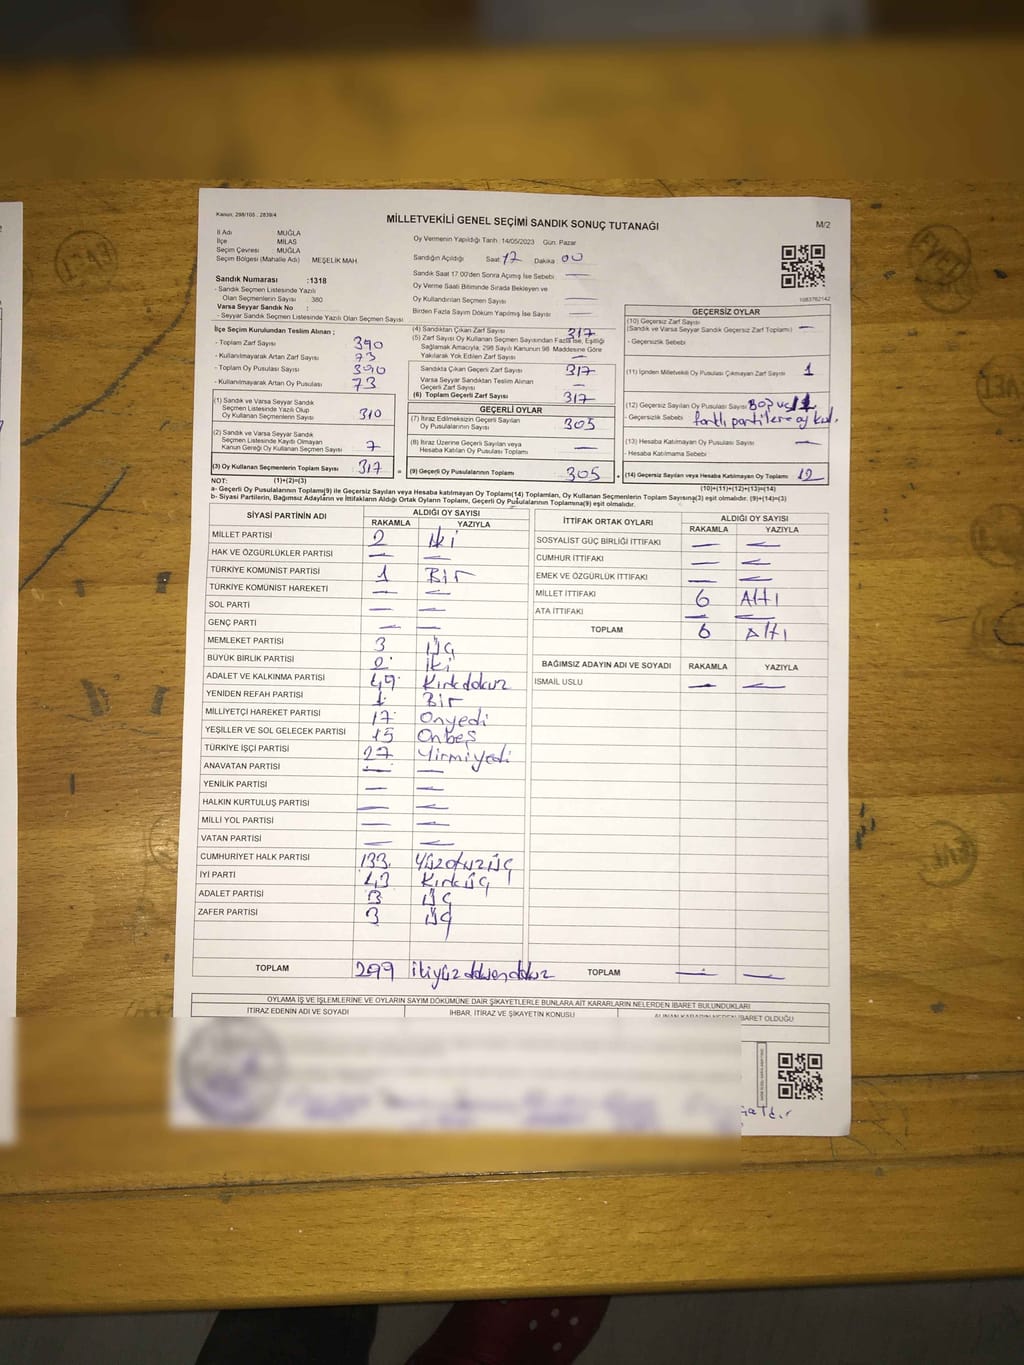 Kanun, 298/105 . 2839/4
MİLLETVEKİLİ GENEL SEÇİMİ SANDIK SONUÇ TUTANAĞI
M/2
İl Adı MUĞLA
İlçe MİLAS
Seçim Çevresi : MUĞLA
Seçim Bölgesi (Mahalle Adı) MEŞELİK MAH.
Sandık Numarası :1318
- Sandık Seçmen Listesinde Yazılı
Olan Seçmenlerin Sayısı : 380
Varsa Seyyar Sandık No :
- Seyyar Sandık Seçmen Listesinde Yazılı Olan Seçmen Sayısı
Oy Vermenin Yapıldığı Tarih : 14/05/2023 Gün. Pazar
Sandığın Açıldığı Saat 17 Dakika 00
Sandık Saat 17:00'den Sonra Açımış İse Sebebi —
Oy Verme Saati Bitiminde Sırada Bekleyen ve
Oy Kullandırılan Seçmen Sayısı —
Birden Fazla Sayım Döküm Yapılmış İse Sayısı —
1083762142
İlçe Seçim Kurulundan Teslim Alınan ;
- Toplam Zarf Sayısı 390
- Kullanılmayarak Artan Zarf Sayısı 73
- Toplam Oy Pusulası Sayısı 390
- Kullanılmayarak Artan Oy Pusulası 73
(1) Sandık ve Varsa Seyyar Sandık
Seçmen Listesinde Yazılı Olup
Oy Kullanan Seçmenlerin Sayısı 310
(2) Sandık ve Varsa Seyyar Sandık
Seçmen Listesinde Kayıtlı Olmayan
Kanun Gereği Oy Kullanan Seçmen Sayısı 7
(3) Oy Kullanan Seçmenlerin Toplam Sayısı 317
(4) Sandıktan Çıkan Zarf Sayısı 317
(5) Zarf Sayısı Oy Kullanan Seçmen Sayısından Fazla ise, Eşitliği
Sağlamak Amacıyla; 298 Sayılı Kanunun 98. Maddesine Göre
Yakılarak Yok Edilen Zarf Sayısı —
Sandıkta Çıkan Geçerli Zarf Sayısı 317
Varsa Seyyar Sandıktan Teslim Alınan
Geçerli Zarf Sayısı —
(6) Toplam Geçerli Zarf Sayısı 317
GEÇERLİ OYLAR
(7) İtiraz Edilmeksizin Geçerli Sayılan
Oy Pusulalarının Sayısı 305
(8) İtiraz Üzerine Geçerli Sayılan veya
Hesaba Katılan Oy Pusulası Toplamı —
= (9) Geçerli Oy Pusulalarının Toplamı 305
GEÇERSİZ OYLAR
(10) Geçersiz Zarf Sayısı
(Sandık ve Varsa Seyyar Sandık Geçersiz Zarf Toplamı) —
- Geçersizlik Sebebi
(11) İçinden Milletvekili Oy Pusulası Çıkmayan Zarf Sayısı 1
(12) Geçersiz Sayılan Oy Pusulası Sayısı
- Geçersizlik Sebebi farklı partilere oy kul.
(13) Hesaba Katılmayan Oy Pusulası Sayısı —
- Hesaba Katılmama Sebebi
+ (14) Geçersiz Sayılan veya Hesaba Katılmayan Oy Toplamı 12
NOT: (1)+(2)=(3) (10)+(11)+(12)+(13)=(14)
a- Geçerli Oy Pusulalarının Toplamı(9) ile Geçersiz Sayılan veya Hesaba katılmayan Oy Toplamı(14) Toplamları, Oy Kullanan Seçmenlerin Toplam Sayısına(3) eşit olmalıdır. (9)+(14)=(3)
b- Siyasi Partilerin, Bağımsız Adayların ve İttifakların Aldığı Ortak Oyların Toplamı, Geçerli Oy Pusulalarının Toplamına(9) eşit olmalıdır.
SİYASİ PARTİNİN ADI ALDIĞI OY SAYISI
RAKAMLA YAZIYLA
MİLLET PARTİSİ 2 iki
HAK VE ÖZGÜRLÜKLER PARTİSİ — —
TÜRKİYE KOMÜNİST PARTİSİ 1 Bir
TÜRKİYE KOMÜNİST HAREKETİ — —
SOL PARTİ — —
GENÇ PARTİ — —
MEMLEKET PARTİSİ 3 üç
BÜYÜK BİRLİK PARTİSİ 2 iki
ADALET VE KALKINMA PARTİSİ 49 Kırkdokuz
YENİDEN REFAH PARTİSİ 1 Bir
MİLLİYETÇİ HAREKET PARTİSİ 17 Onyedi
YEŞİLLER VE SOL GELECEK PARTİSİ 15 Onbeş
TÜRKİYE İŞÇİ PARTİSİ 27 Yirmiyedi
ANAVATAN PARTİSİ — —
YENİLİK PARTİSİ — —
HALKIN KURTULUŞ PARTİSİ — —
MİLLİ YOL PARTİSİ — —
VATAN PARTİSİ — —
CUMHURİYET HALK PARTİSİ 133 Yüzotuzüç
İYİ PARTİ 43 Kırküç
ADALET PARTİSİ 3 üç
ZAFER PARTİSİ 3 üç
TOPLAM 299 ikiyüzdoksandokuz
İTTİFAK ORTAK OYLARI ALDIĞI OY SAYISI
RAKAMLA YAZIYLA
SOSYALİST GÜÇ BİRLİĞİ İTTİFAKI — —
CUMHUR İTTİFAKI — —
EMEK VE ÖZGÜRLÜK İTTİFAKI — —
MİLLET İTTİFAKI 6 Altı
ATA İTTİFAKI — —
TOPLAM 6 Altı
BAĞIMSIZ ADAYIN ADI VE SOYADI RAKAMLA YAZIYLA
İSMAİL USLU — —
TOPLAM — —
OYLAMA İŞ VE İŞLEMLERİNE VE OYLARIN SAYIM DÖKÜMÜNE DAİR ŞİKAYETLERLE BUNLARA AİT KARARLARIN NELERDEN İBARET BULUNDUKLARI
İTİRAZ EDENİN ADI VE SOYADI İHBAR, İTİRAZ VE ŞİKAYETİN KONUSU ALINAN KARARIN NEDEN İBARET OLDUĞU